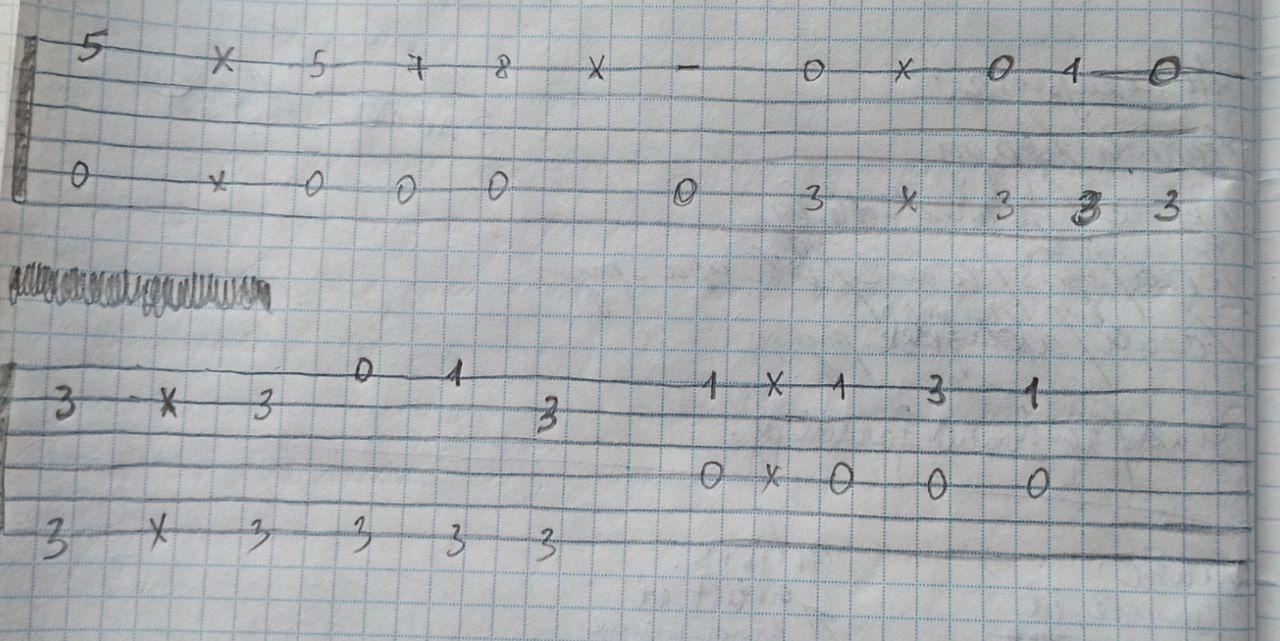 5 x 5 7 8 x - 0 x 0 1 0
0 x 0 0 0 0 3 x 3 3 3
0 1 1 x 1 3 1
3 x 3 3
0 x 0 0 0
3 x 3 3 3 3